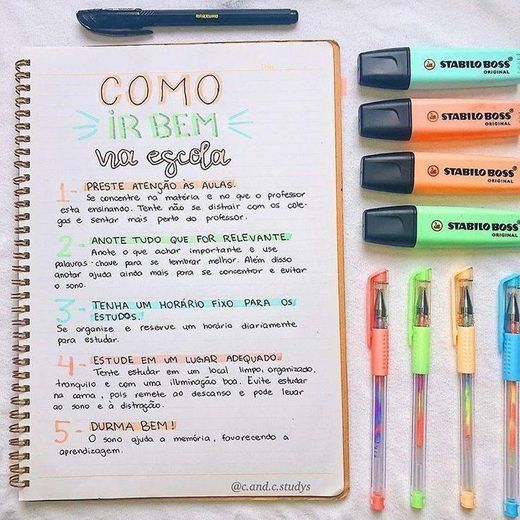 COMO
IR BEM
na escola
1- PRESTE ATENÇÃO ÀS AULAS.
Se concentre na matéria e no que o professor
está ensinando. Tente não se distrair com os cole-
gas e sentar mais perto do professor.
2- ANOTE TUDO QUE FOR RELEVANTE.
Anote o que achar importante e use
palavras-chave para se lembrar melhor. Além disso
anotar ajuda ainda mais para se concentrar e evitar
o sono.
3- TENHA UM HORÁRIO FIXO PARA OS
ESTUDOS.
Se organize e reserve um horário diariamente
para estudar.
4- ESTUDE EM UM LUGAR ADEQUADO.
Tente estudar em um local limpo, organizado,
tranquilo e com uma iluminação boa. Evite estudar
na cama, pois remete ao descanso e pode levar
ao sono e à distração.
5- DURMA BEM!
O sono ajuda a memória, favorecendo a
aprendizagem.
@c.and.c.studys
STABILO BOSS
ORIGINAL
STABILO BOSS
ORIGINAL
STABILO BOSS
ORIGINAL
STABILO BOSS
ORIGINAL